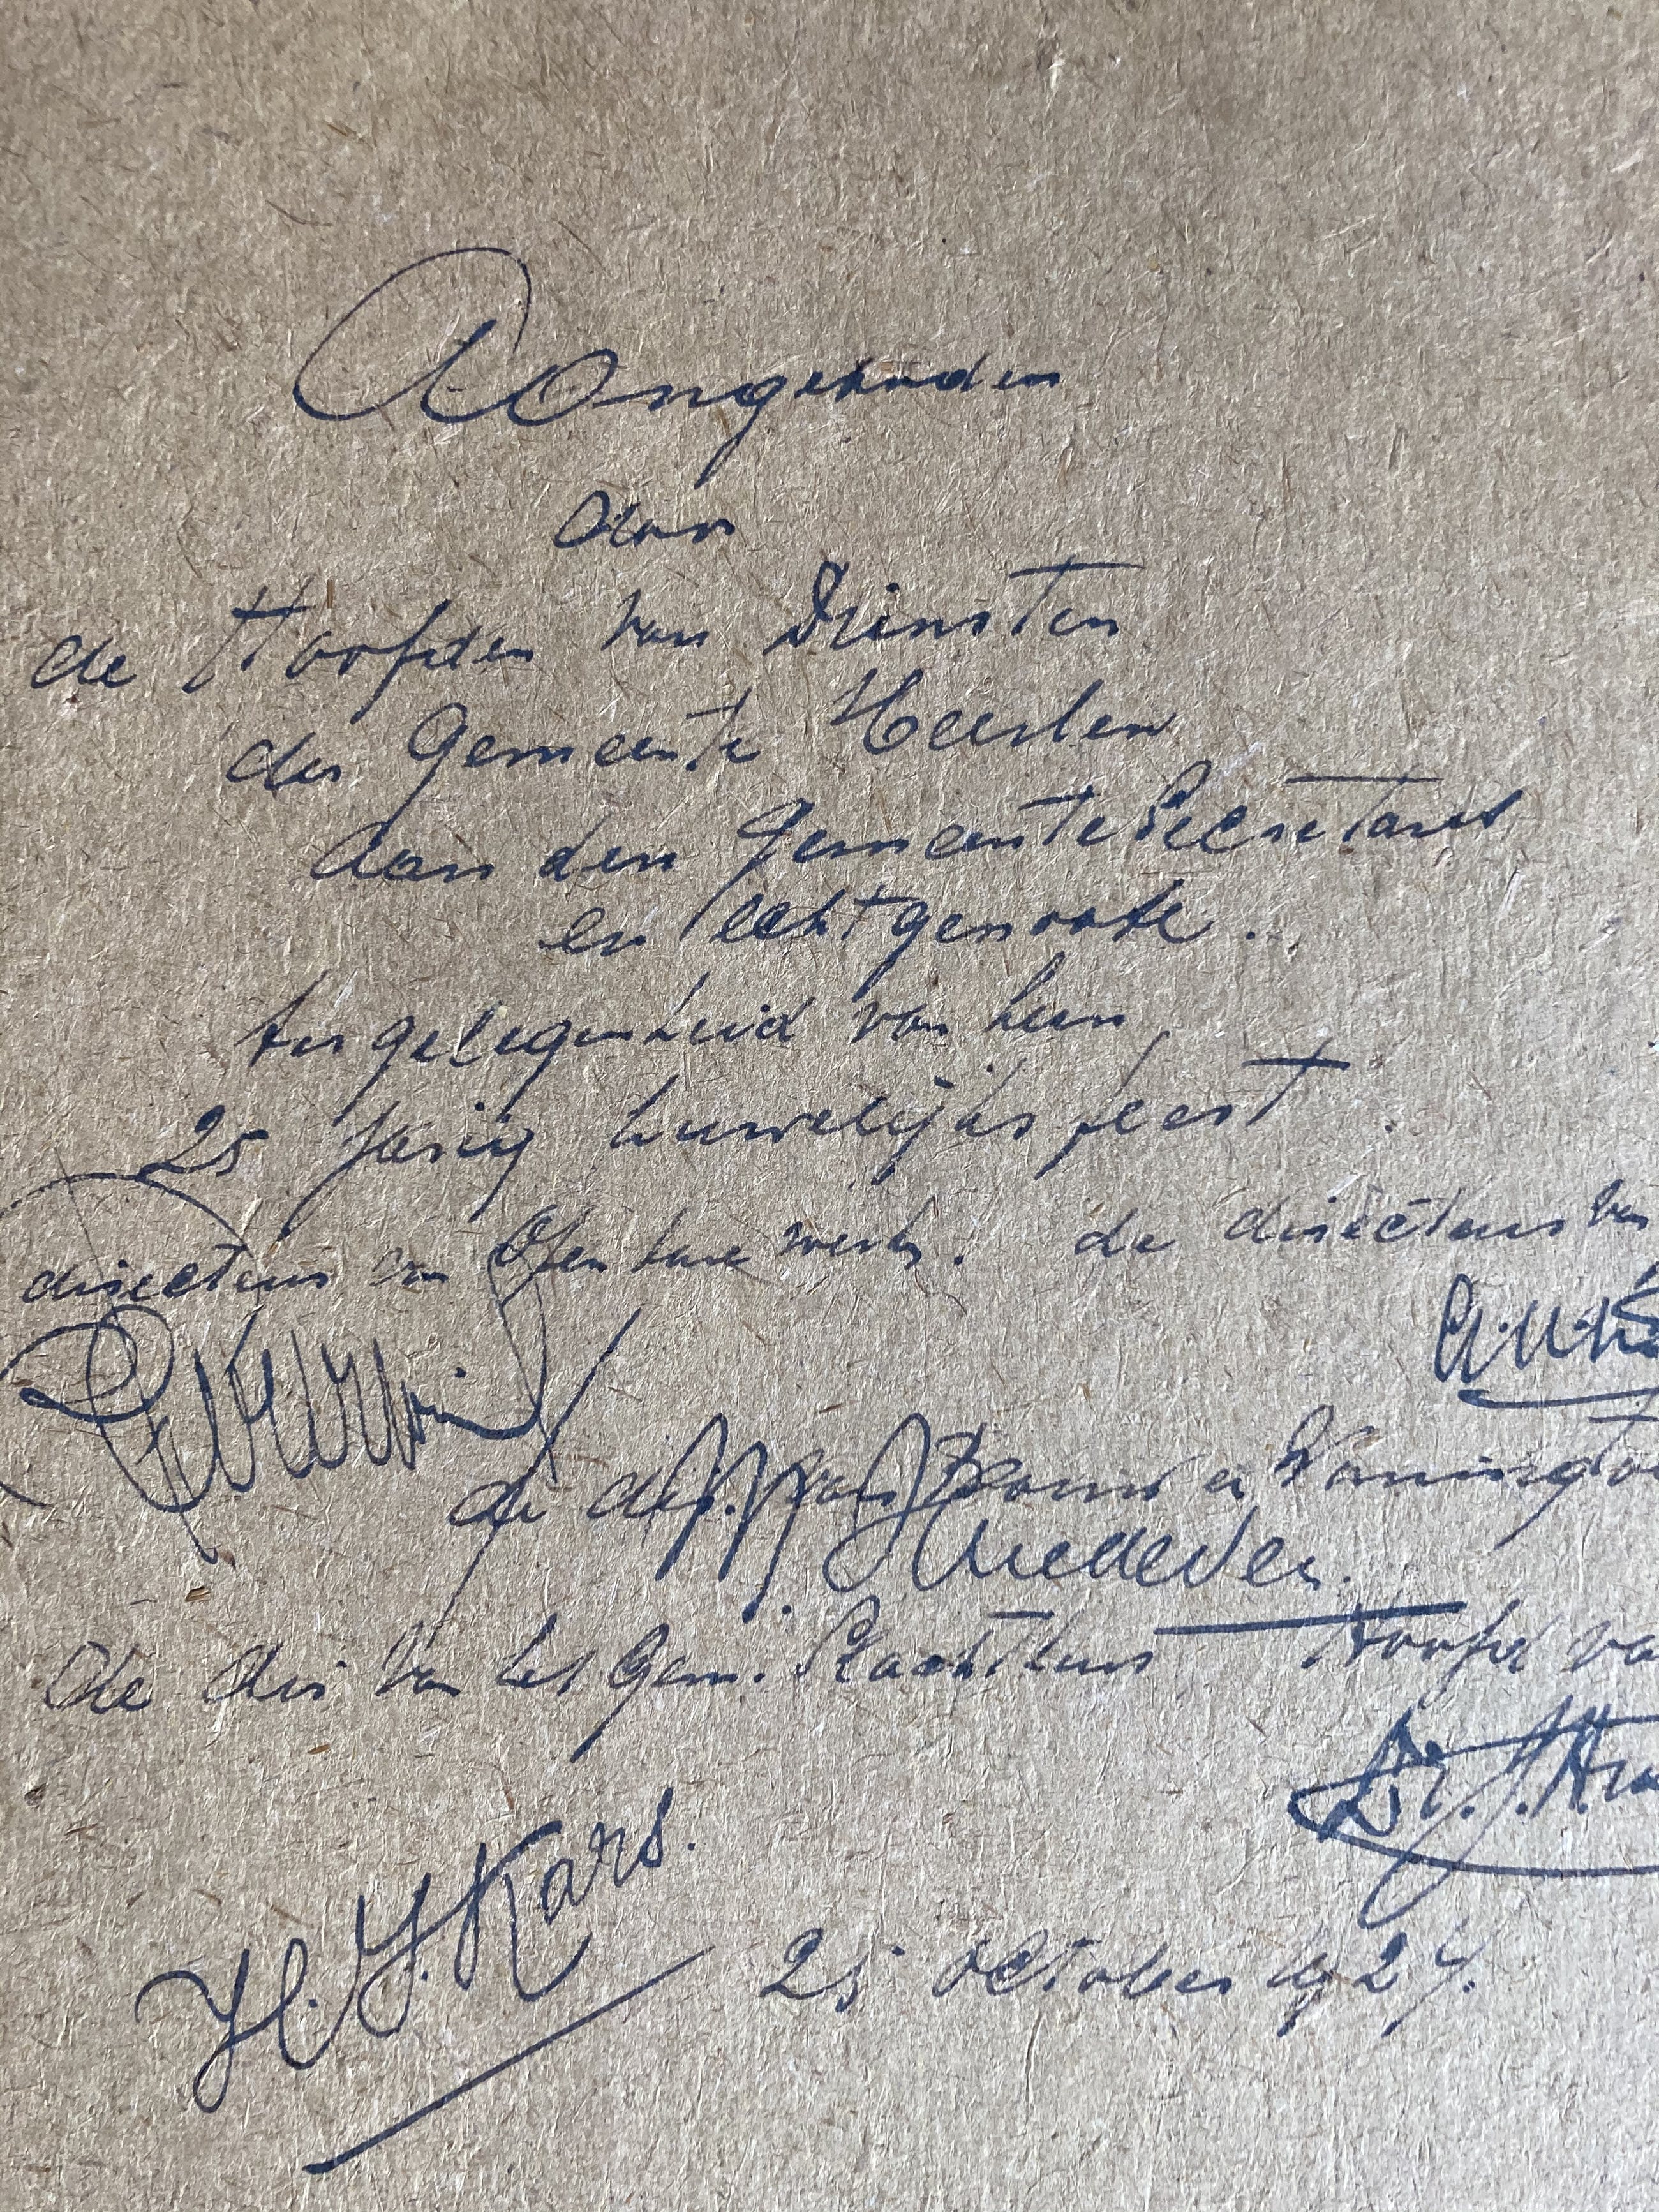 Aangeboden
door
de Hoofden van Diensten
der Gemeente Heerlen
Aan den Gemeente Secretaris
en echtgenoote.
ter gelegenheid van hun
25 jarig huwelijksfeest.
directeur van Openbare werken. de directeur van
de dir. van Bouw en Woningtoe
de dir van het Gem. Slachthuis Hoofd va
Dr. J. H.
H. J. Kars.
25 October 1924.